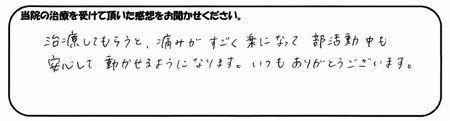 当院の治療を受けて頂いた感想をお聞かせください。
治療してもらうと、痛みが すごく楽になって 部活動中も
安心して 動かせるようになります。いつも ありがとうございます。